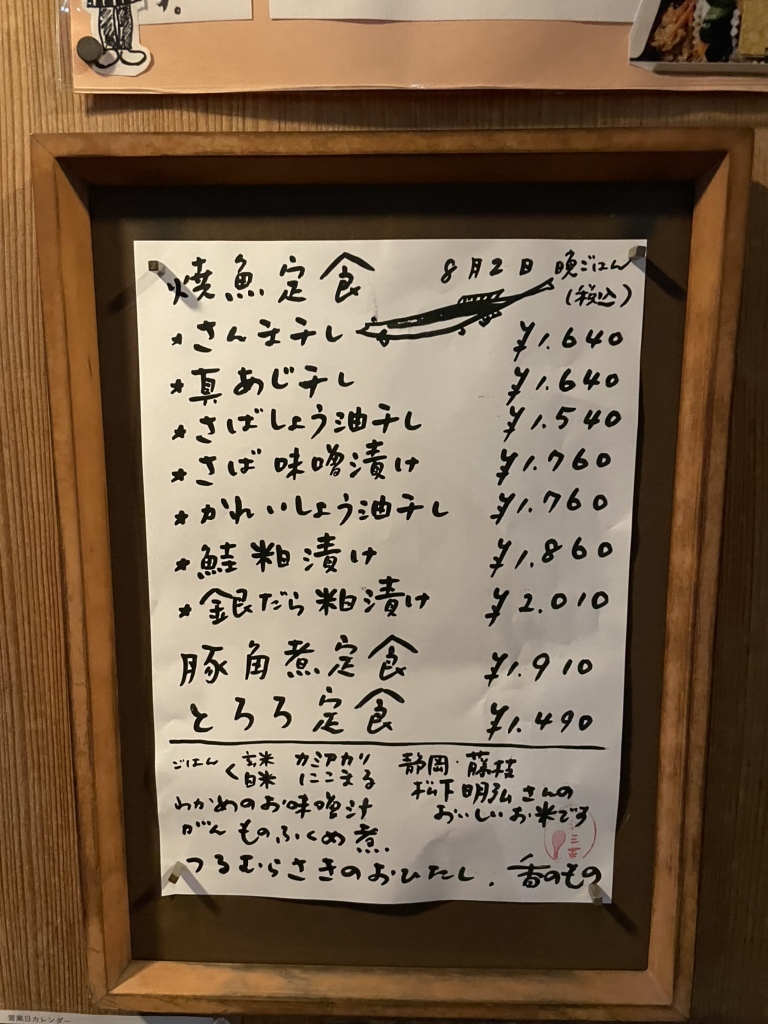 す。
焼魚定食 8月2日 晩ごはん
(税込)
*さんま干し ¥1.640
*真あじ干し ¥1.640
*さばしょう油干し ¥1.540
*さば味噌漬け ¥1.760
*かれいしょう油干し ¥1.760
*鮭粕漬け ¥1.860
*銀だら粕漬け ¥2.010
豚角煮定食 ¥1.910
とろろ定食 ¥1.490
ごはん く 玄米 カミアカリ 静岡・藤枝
白米 にこまる 松下明弘さんの
わかめのお味噌汁 おいしいお米です
がんものふくめ煮.
つるむらさきのおひたし. 香のもの
営業日カレンダー